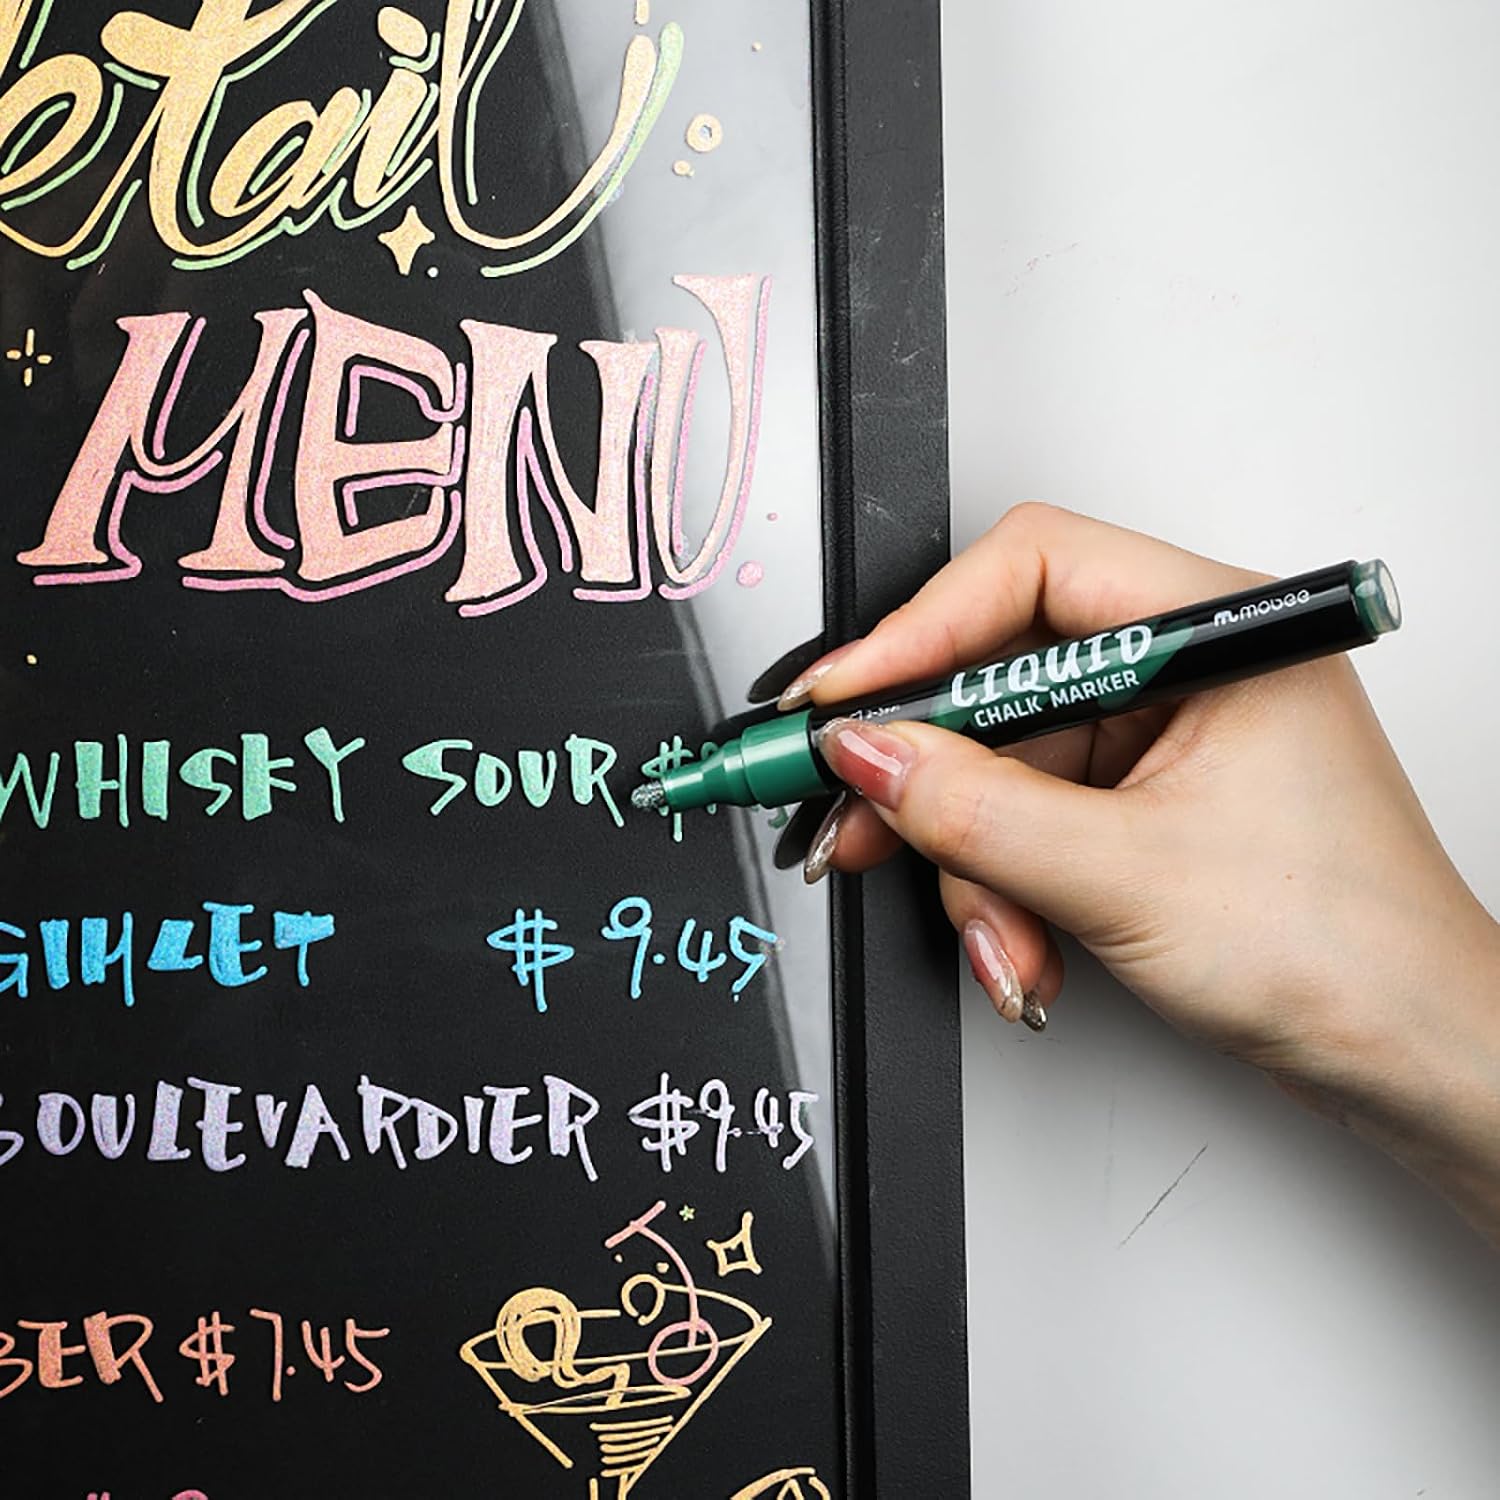 etail
MENU
WHISKY SOUR $
GIMLET $ 9.45
BOULEVARDIER $9.45
BER $7.45
mobee
LIQUID
CHALK MARKER